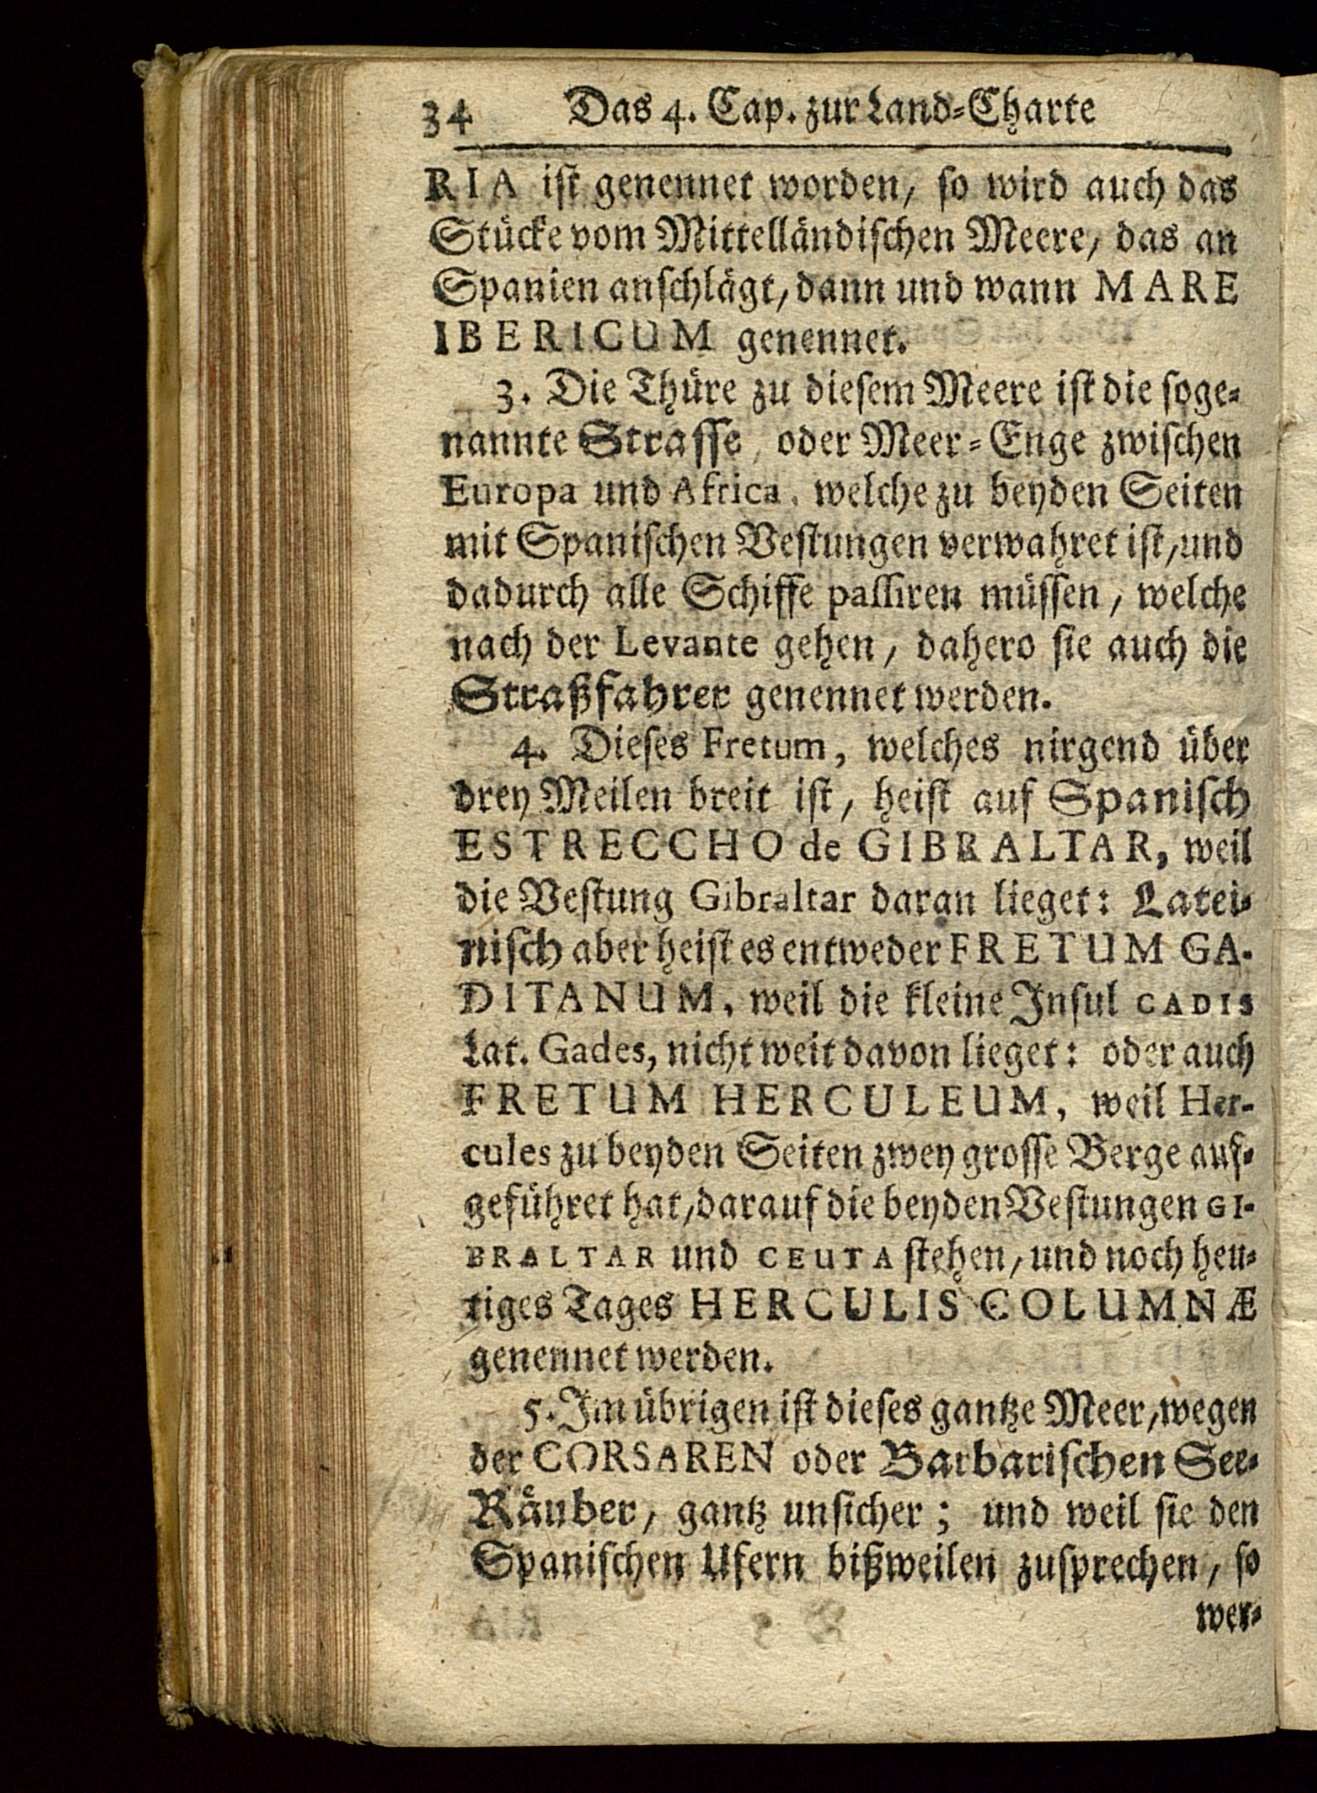 34 Das 4. Cap. zur Land-Charte
RIA ist genennet worden, so wird auch das
Stücke vom Mittelländischen Meere, das an
Spanien anschlägt, dann und wann MARE
IBERICUM genennet.
3. Die Thüre zu diesem Meere ist die soge-
nannte Strasse, oder Meer-Enge zwischen
Europa und Africa, welche zu beyden Seiten
mit Spanischen Vestungen verwahret ist, und
dadurch alle Schiffe passiren müssen, welche
nach der Levante gehen, dahero sie auch die
Straßfahrer genennet werden.
4. Dieses Fretum, welches nirgend über
drey Meilen breit ist, heist auf Spanisch
ESTRECCHO de GIBRALTAR, weil
die Vestung Gibraltar daran lieget: Latei-
nisch aber heist es entweder FRETUM GA-
DITANUM, weil die kleine Insul CADIS
Lat. Gades, nicht weit davon lieget: oder auch
FRETUM HERCULEUM, weil Her-
cules zu beyden Seiten zwey grosse Berge auf-
geführet hat, darauf die beyden Vestungen GI-
BRALTAR und CEUTA stehen, und noch heu-
tiges Tages HERCULIS COLUMNÆ
genennet werden.
5. Im übrigen ist dieses gantze Meer, wegen
der CORSAREN oder Barbarischen See-
Räuber, gantz unsicher; und weil sie den
Spanischen Ufern bißweilen zusprechen, so
wer-